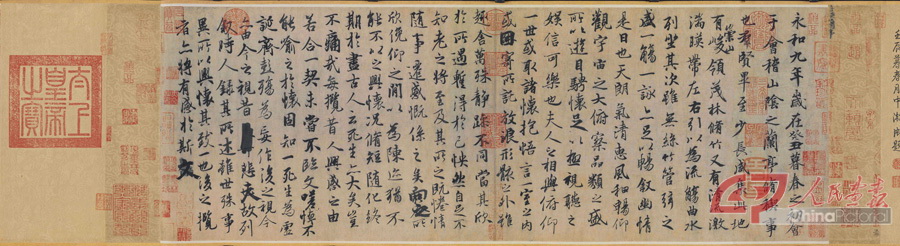 永和九年歲在癸丑暮春之初會
于會稽山陰之蘭亭脩稧事
也羣賢畢至少長咸集此地
有崇山峻領茂林脩竹又有清流激
湍暎帶左右引以為流觴曲水
列坐其次雖無絲竹管弦之
盛一觴一詠亦足以暢敘幽情
是日也天朗氣清惠風和暢仰
觀宇宙之大俯察品類之盛
所以遊目騁懷足以極視聽之
娛信可樂也夫人之相與俯仰
一世或取諸懷抱悟言一室之內
或因寄所託放浪形骸之外雖
趣舍萬殊靜躁不同當其欣
於所遇蹔得於己怏然自足不
知老之將至及其所之既惓情
隨事遷感慨係之矣向之所
欣俛仰之閒以為陳迹猶不
能不以之興懷況脩短隨化終
期於盡古人云死生亦大矣豈
不痛哉每攬昔人興感之由
若合一契未嘗不臨文嗟悼不
能喻之於懷固知一死生為虛
誕齊彭殤為妄作後之視今
亦由今之視昔悲夫故列
敘時人錄其所述雖世殊事
異所以興懷其致一也後之攬
者亦將有感於斯文
太上皇帝之寶
人民画报
ChinaPictorial